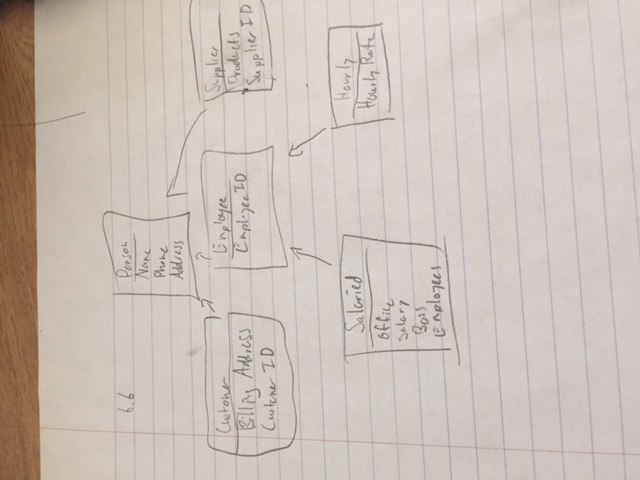 6.6
Person
Name
Phone
Address
Customer
Billing Address
Customer ID
Employee
Employee ID
Supplier
Products
Supplier ID
Salaried
Office
Salary
Boss
Employees
Hourly
Hourly Rate